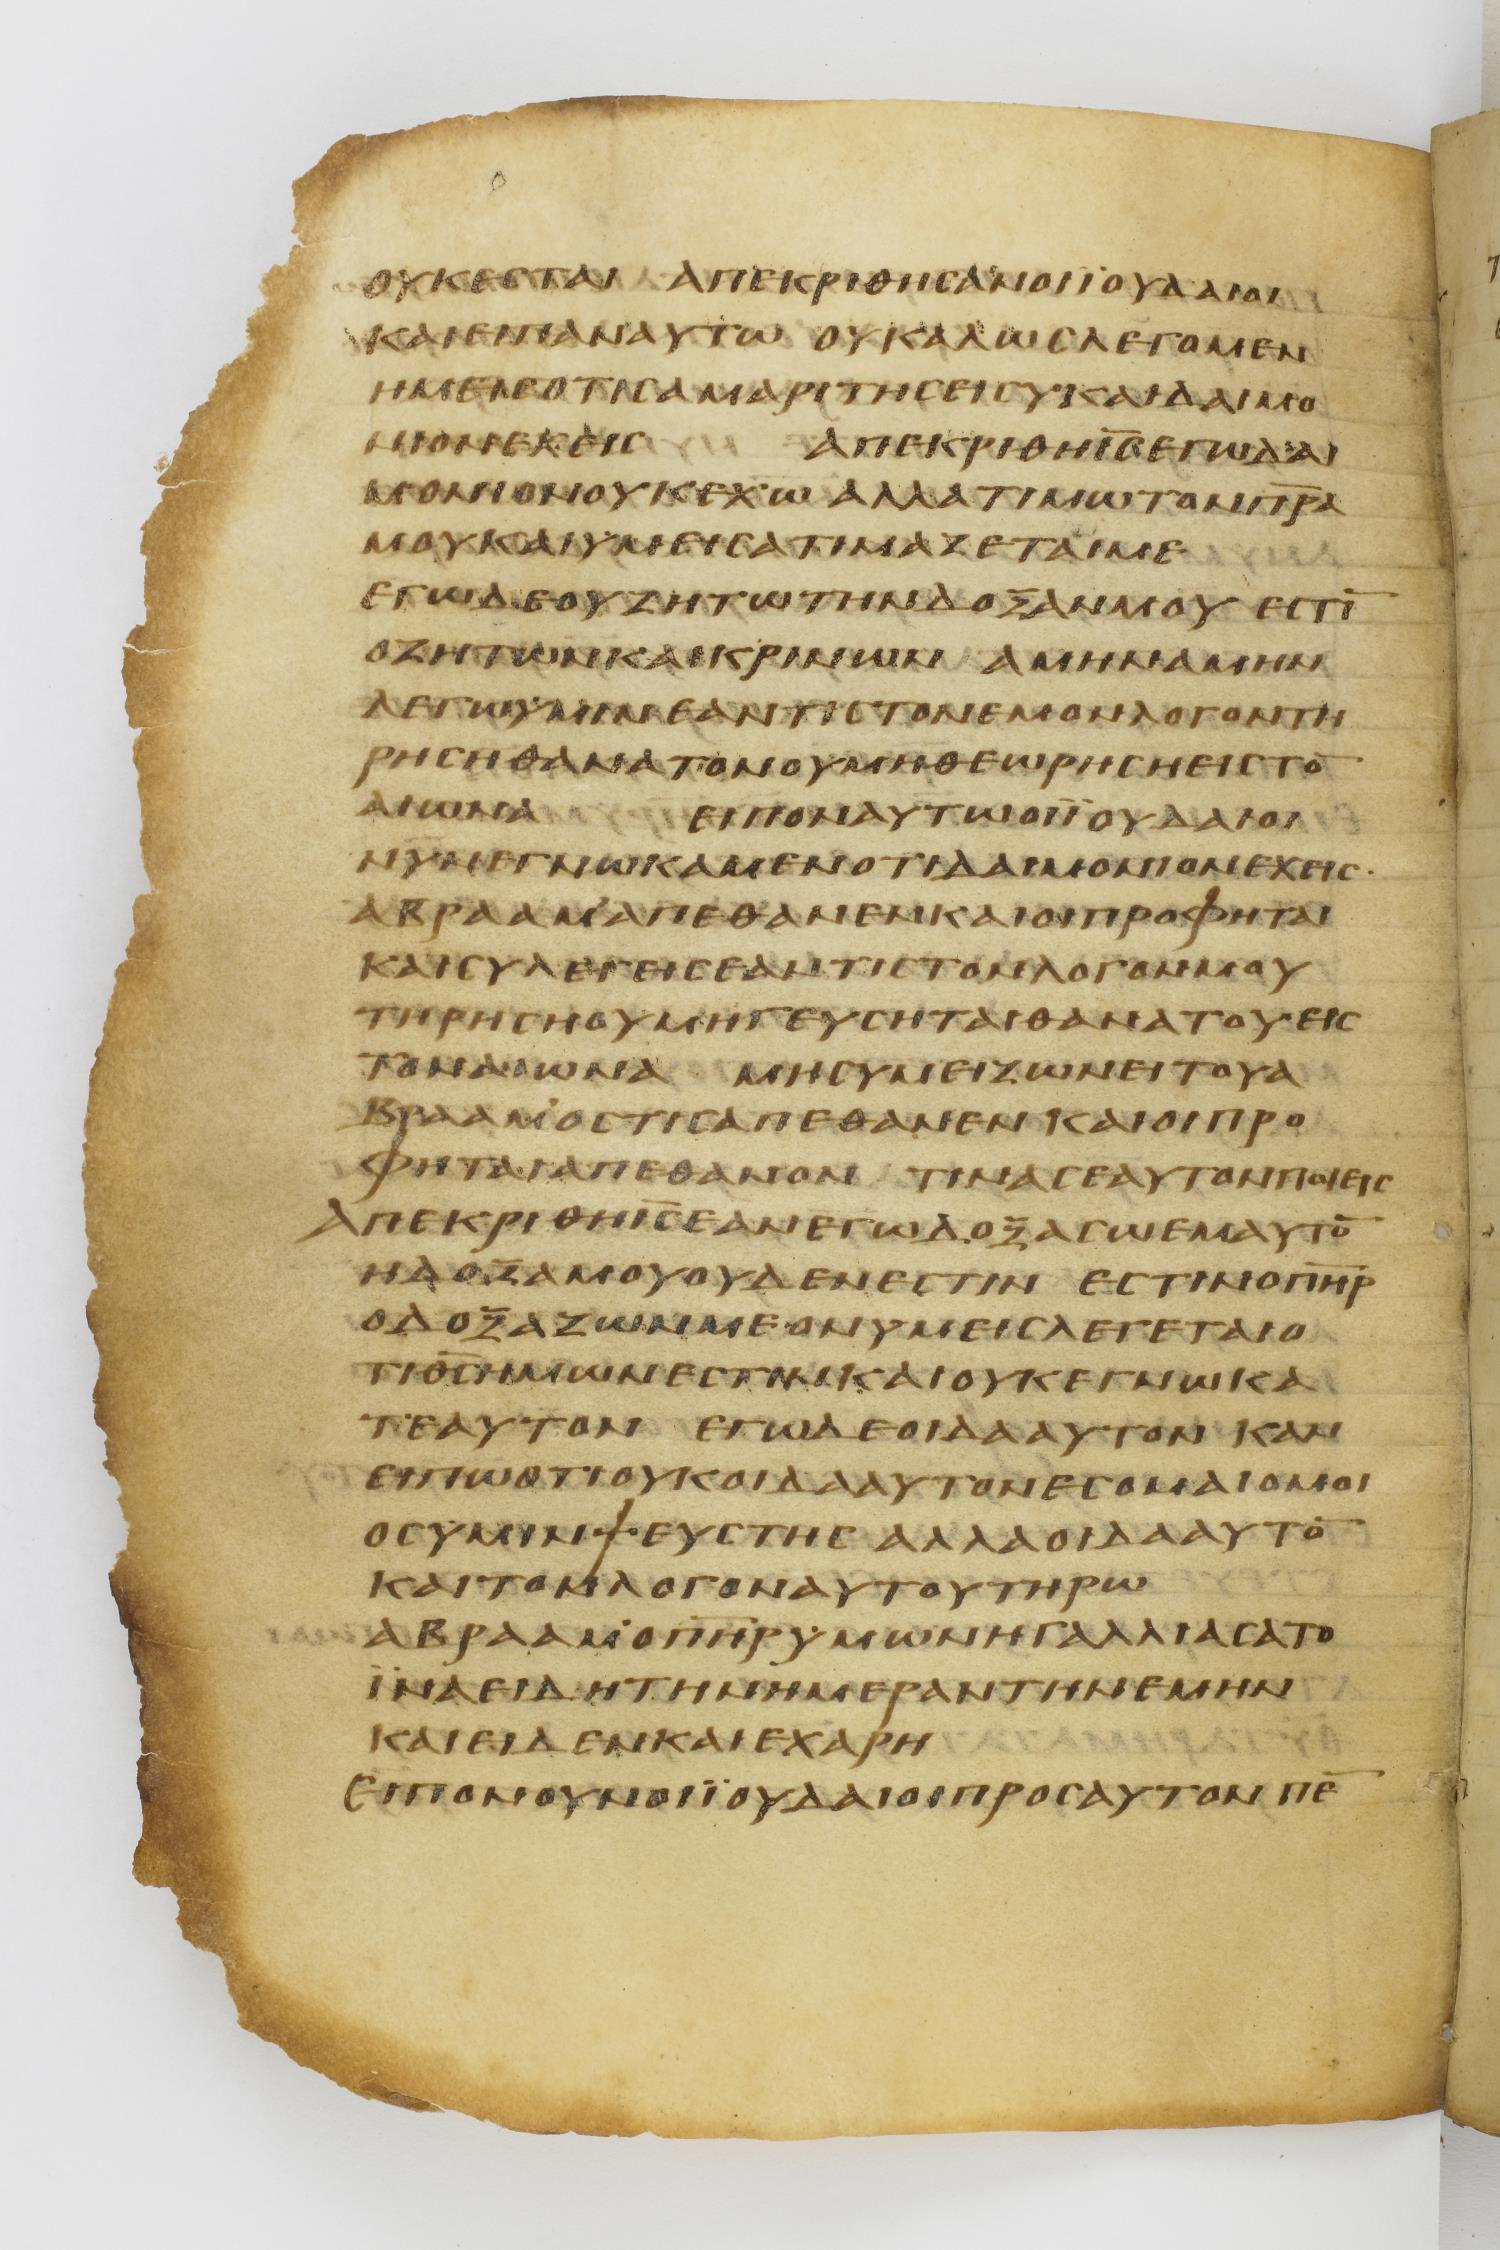 ΟΥΚΕСΤΑΙ ΑΠΕΚΡΙΘΗСΑΝΟΙΪΟΥΔΑΙΟΙ
ΚΑΙΕΙΠΑΝΑΥΤΩ ΟΥΚΑΛΩСΛΕΓΟΜΕΝ
ΗΜΕΙСΟΤΙСΑΜΑΡΙΤΗСΕΙСΥΚΑΙΔΑΙΜΟ
ΝΙΟΝΕΧΕΙС ΑΠΕΚΡΙΘΗΙ̅С̅ΕΓΩΔΑΙ
ΜΟΝΙΟΝΟΥΚΕΧΩ ΑΛΛΑΤΙΜΩΤΟΝΠ̅Ρ̅Α
ΜΟΥΚΑΙΥΜΕΙСΑΤΙΜΑΖΕΤΑΙΜΕ
ΕΓΩΔΕΟΥΖΗΤΩΤΗΝΔΟΞΑΝΜΟΥ ΕСΤΙ̅
ΟΖΗΤΩΝΚΑΙΚΡΙΝΩΝ ΑΜΗΝΑΜΗΝ
ΛΕΓΩΥΜΙΝΕΑΝΤΙСΤΟΝΕΜΟΝΛΟΓΟΝΤΗ
ΡΗСΗΘΑΝΑΤΟΝΟΥΜΗΘΕΩΡΗСΗΕΙСΤΟ̅
ΑΙΩΝΑ ΕΙΠΟΝΑΥΤΩΟΙΪΟΥΔΑΙΟΙ
ΝΥΝΕΓΝΩΚΑΜΕΝΟΤΙΔΑΙΜΟΝΙΟΝΕΧΕΙС·
ΑΒΡΑΑΜ᾽ΑΠΕΘΑΝΕΝΚΑΙΟΙΠΡΟΦΗΤΑΙ
ΚΑΙСΥΛΕΓΕΙСΕΑΝΤΙСΤΟΝΛΟΓΟΝΜΟΥ
ΤΗΡΗСΗΟΥΜΗΓΕΥСΗΤΑΙΘΑΝΑΤΟΥΕΙС
ΤΟΝΑΙΩΝΑ ΜΗСΥΜΕΙΖΩΝΕΙΤΟΥΑ
ΒΡΑΑΜ᾽ΟСΤΙСΑΠΕΘΑΝΕΝΚΑΙΟΙΠΡΟ
ΦΗΤΑΙΑΠΕΘΑΝΟΝ ΤΙΝΑСΕΑΥΤΟΝΠΟΙΕΙС
ΑΠΕΚΡΙΘΗΙ̅С̅ΕΑΝΕΓΩΔΟΞΑСΩΕΜΑΥΤΟ̅
ΗΔΟΞΑΜΟΥΟΥΔΕΝΕСΤΙΝ ΕСΤΙΝΟΠ̅Η̅Ρ̅
ΟΔΟΞΑΖΩΝΜΕ·ΟΝΥΜΕΙСΛΕΓΕΤΑΙΟ
ΤΙΘ̅С̅ΗΜΩΝΕСΤΙΝΚΑΙΟΥΚΕΓΝΩΚΑ
ΤΕΑΥΤΟΝ ΕΓΩΔΕΟΙΔΑΑΥΤΟΝ ΚΑΝ
ΕΙΠΩΟΤΙΟΥΚΟΙΔΑΑΥΤΟΝΕСΟΜΑΙΟΜΟΙ
ΟСΥΜΙΝΨΕΥСΤΗС ΑΛΛΑΟΙΔΑΑΥΤΟ̅
ΚΑΙΤΟΝΛΟΓΟΝΑΥΤΟΥΤΗΡΩ
ΑΒΡΑΑΜ᾽ΟΠ̅Η̅Ρ̅ΥΜΩΝΗΓΑΛΛΙΑСΑΤΟ
ΪΝΑΕΙΔΗΤΗΝΗΜΕΡΑΝΤΗΝΕΜΗΝ
ΚΑΙΕΙΔΕΝΚΑΙΕΧΑΡΗ
ΕΙΠΟΝΟΥΝΟΙΪΟΥΔΑΙΟΙΠΡΟСΑΥΤΟΝΠΕ̅